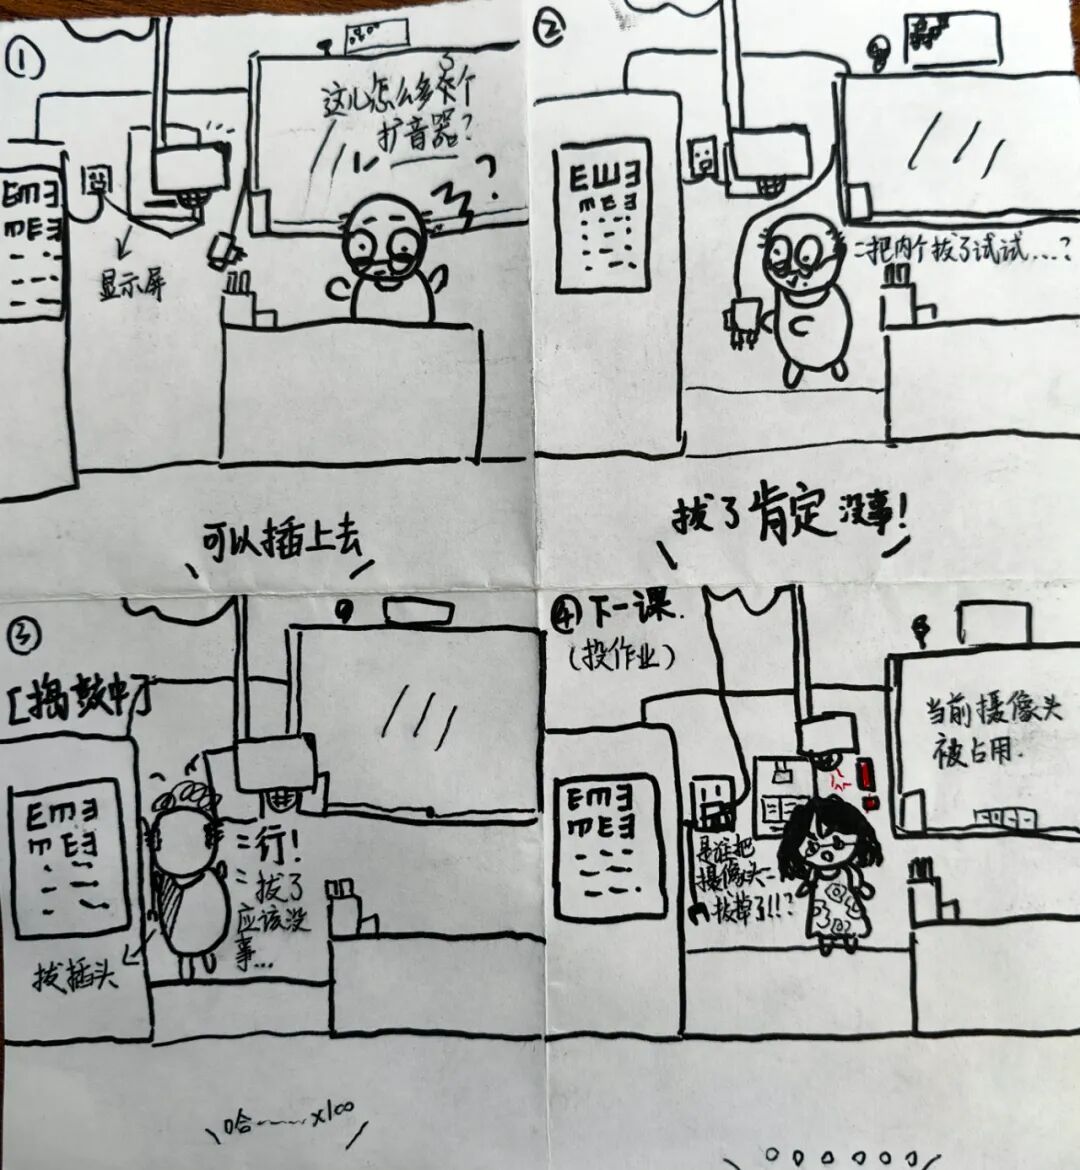 ①
这儿怎么多了个
扩音器?
?
EME
MEE
显示屏
可以插上去
②
EШE
MEE
把内个拔了试试...?
拔了肯定没事!
③
[捣鼓中]
EME
MEE
行!
拔了
应该没
事...
拔插头
哈……x100
④下一课.
(投作业)
当前摄像头
被占用.
EME
MEE
!!
是谁把
摄像头
拔掉了!!?
。。。。。。